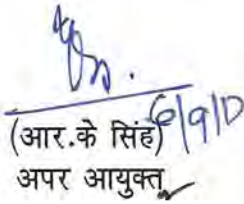 6/9/10
(आर.के सिंह)
अपर आयुक्त